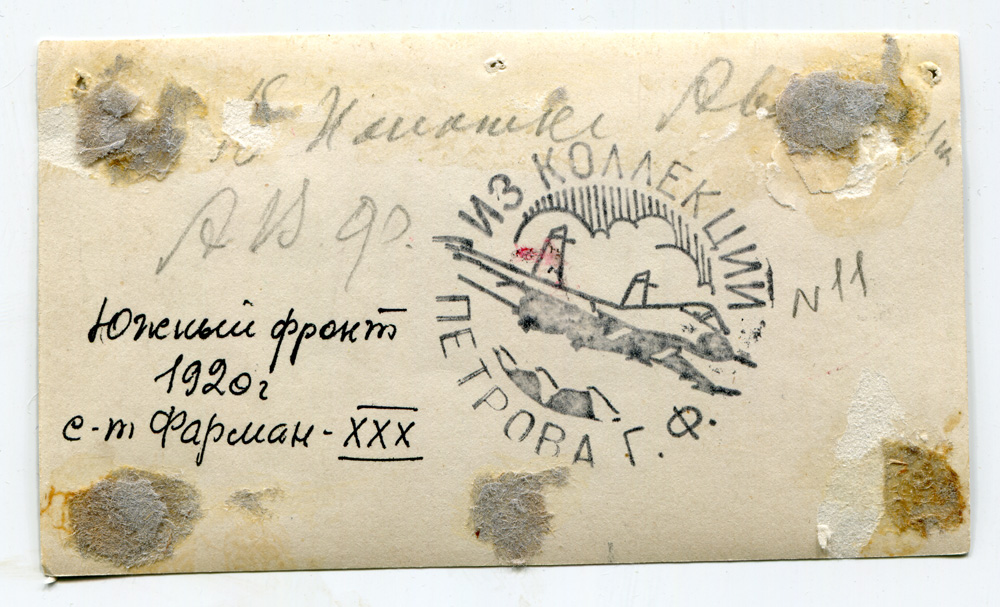 А. В. Ф.
ИЗ КОЛЛЕКЦИИ
ПЕТРОВА Г. Ф.
N 11
Южный фронт
1920г
с-т Фарман-XXX